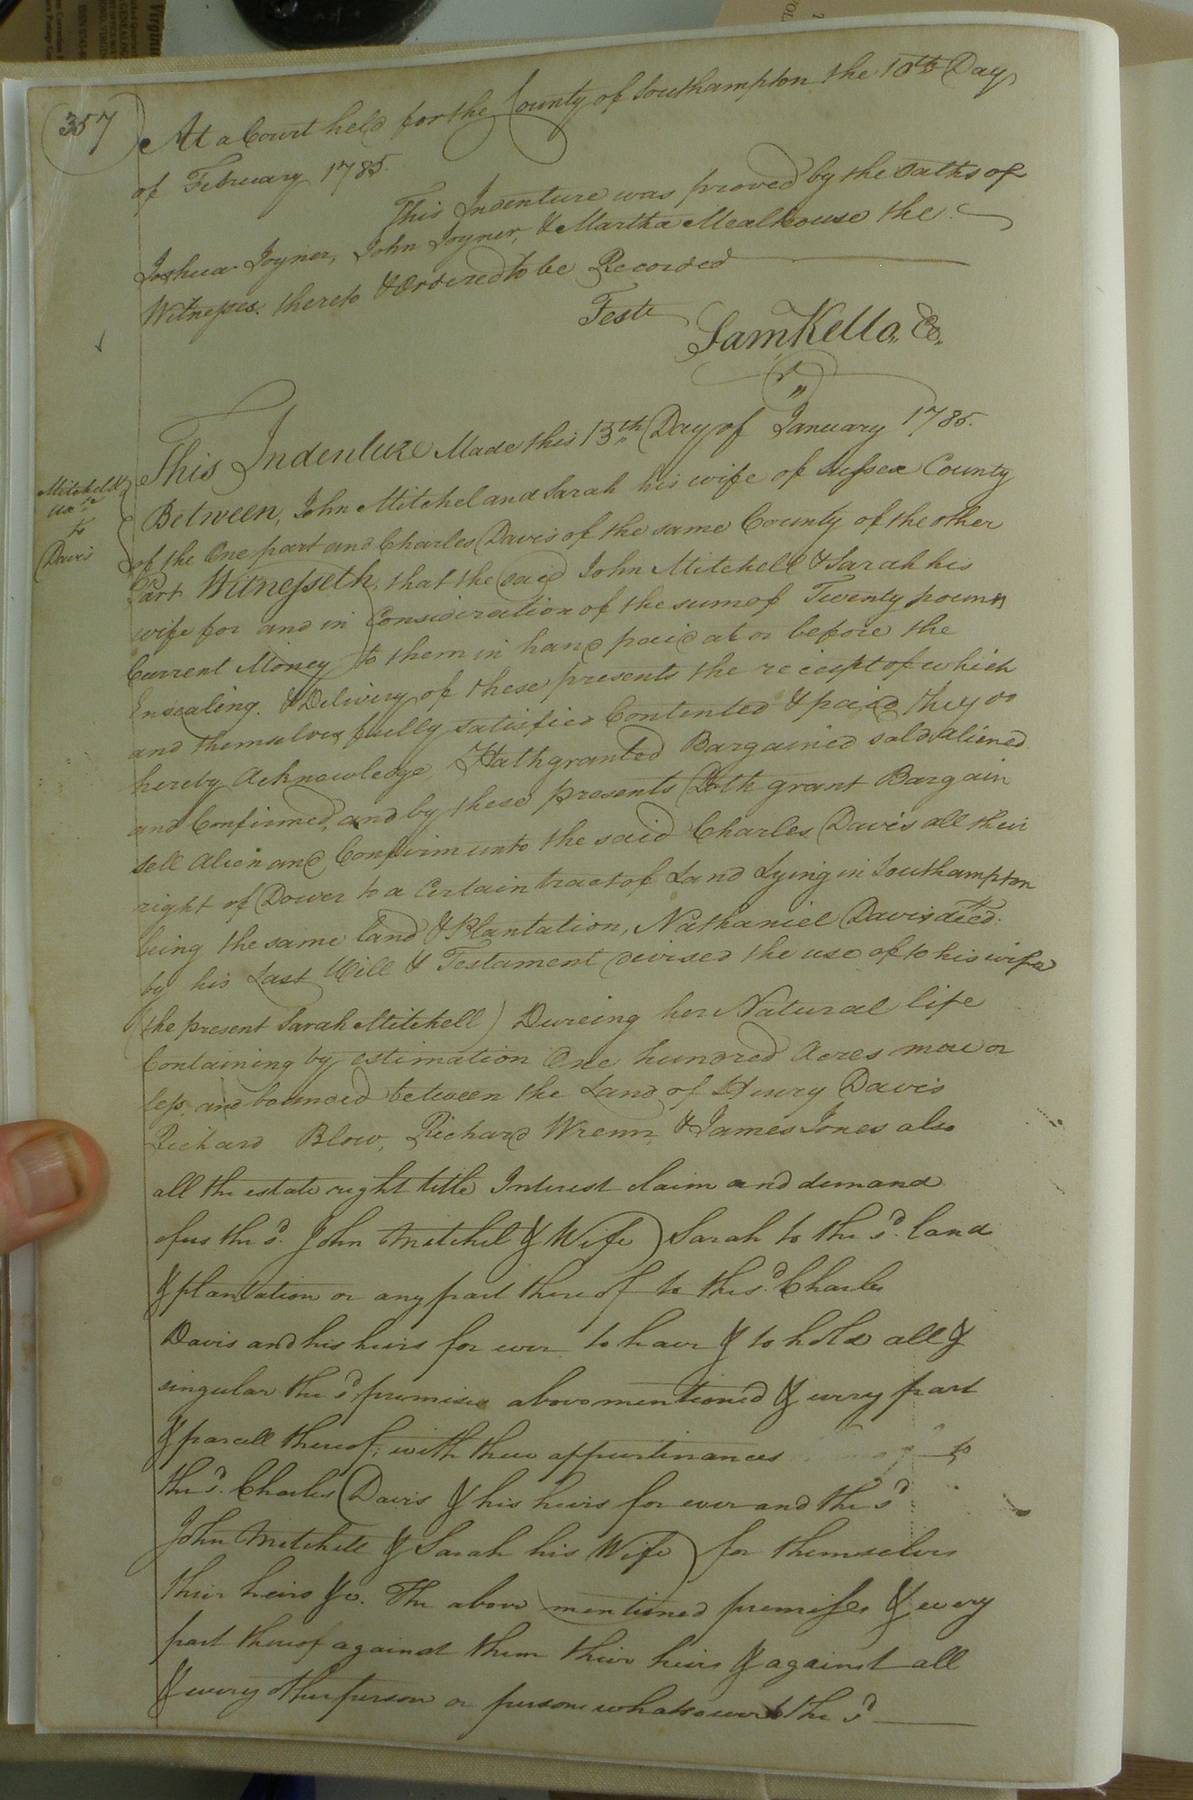 357
At a Court held for the County of Southampton the 10th Day
of February 1785.
This Indenture was proved by the oaths of
Joshua Joyner, John Joyner, & Martha Mealhouse the
Witnesses. thereto & Ordered to be Recorded
Teste
Sam Kello, Co.
Mitchel &
uxr
to
Davis
This Indenture Made this 13th Day of January 1785.
Between, John Mitchel and Sarah his wife of Sussex County
of the One part and Charles Davis of the same County of the other
Part Witnesseth, that the said John Mitchell & Sarah his
wife for and in Consideration of the sum of Twenty pounds
Current Money to them in hand paid at or before the
Ensealing. & Delivery of these presents the receipt of which
and themselves fully satisfied Contented & paid they do
hereby Acknowledge, Hath granted Bargained sold aliened
and Confirmed, and by these presents Doth grant Bargain
sell Alien and Confirm unto the said Charles Davis all their
right of Dower to a Certain tract of Land Lying in Southampton
being the same land & Plantation, Nathaniel Davis decd.
by his Last Will & Testament devised the use of to his wife
(the present Sarah Mitchell) Dureing her Natural life
Containing by estimation One hundred Acres more or
less, and bounded between the Land of Henry Davis
Richard Blow, Richard Wrenn & James Jones also
all the estate right title Interest claim and demand
of us the sd. John Mitchel & Wife Sarah to the sd. land
& plantation or any part there of to the sd. Charles
Davis and his heirs for ever to have & to hold all &
singular the sd. premises above mentioned & every part
& parcell thereof, with their appurtinances to
the sd. Charles Davis & his heirs for ever and the sd
John Mitchell & Sarah his Wife for themselves
their heirs &c. The above mentioned premises & every
part thereof against them their heirs & against all
& every other person or persons whatsoever the sd